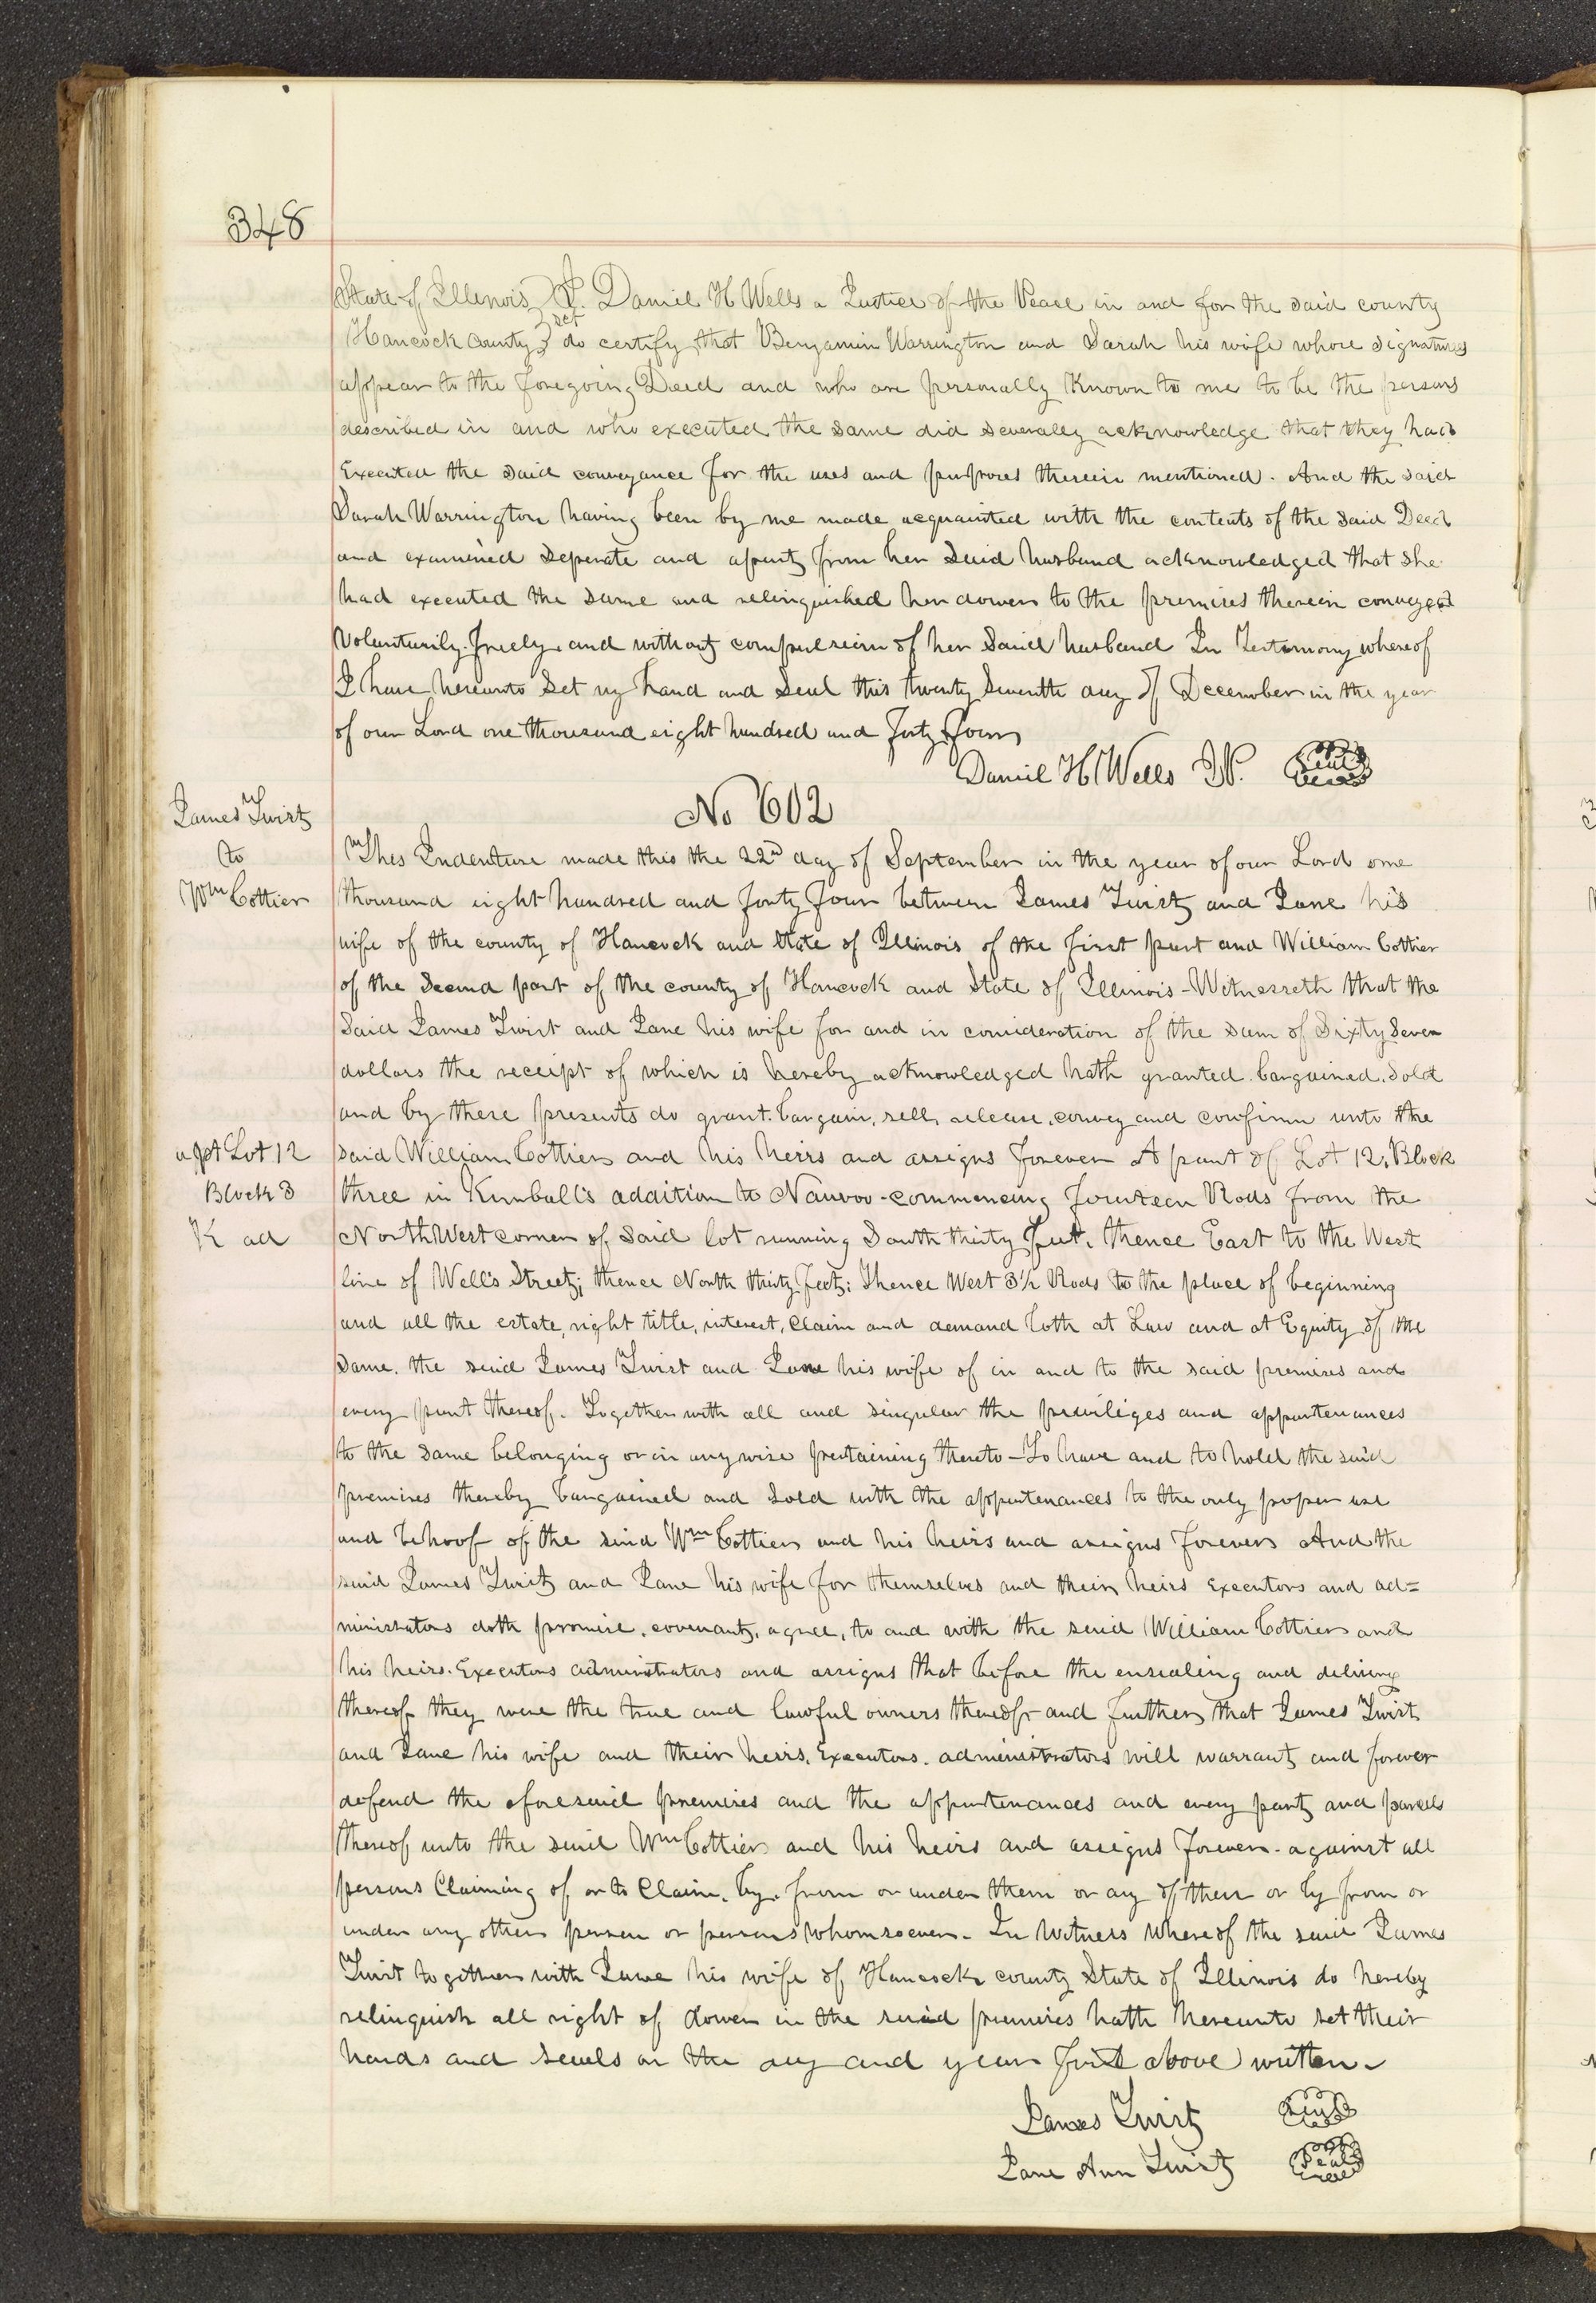 348
State of Illinois } I. Daniel H Wells a Justice of the Peace in and for the said county
Hancock County } sct do certify that Benjamin Warrington and Sarah his wife whose signatures
appear to the foregoing Deed and who are personally Known to me to be the persons
described in and who executed the same did severally acknowledge that they had
Executed the said conveyance for the uses and purposes therein mentioned. And the said
Sarah Warrington having been by me made acquainted with the contents of the said Deed
and examined seperate and apart from her said husband acknowledged that she
had executed the same and relinquished her dower to the premises therein conveyed
Voluntarily. freely. and without compulsion of her said husband In Testimony whereof
I have hereunto set my hand and seal this twenty seventh day of December in the year
of our Lord one thousand eight hundred and forty four
Daniel H Wells J.P. Seal
No 602
James Twist
to
Wm Cottier
This Indenture made this the 22nd day of September in the year of our Lord one
thousand eight hundred and forty four between James Twist and Jane his
wife of the county of Hancock and State of Illinois of the first part and William Cottier
of the second part of the county of Hancock and State of Illinois - Witnesseth that the
said James Twist and Jane his wife for and in consideration of the sum of Sixty Seven
dollars the receipt of which is hereby acknowledged hath granted. bargained. sold
and by these presents do grant. bargain, sell, release, convey and confirm unto the
a pt Lot 12
Block 3
K ad
said William Cottier and his heirs and assigns forever A part of Lot 12. Block
three in Kimball's addition to Nauvoo - commencing fourteen Rods from the
North West corner of said lot running South thirty feet. thence East to the West
line of Well's Street; thence North thirty feet; Thence West 3½ Rods to the place of beginning
and all the estate, right title, interest, claim and demand both at Law and at Equity of the
same. the said James Twist and Jane his wife of in and to the said premises and
every part thereof. Together with all and singular the priviliges and appurtenances
to the same belonging or in anywise pertaining thereto - To have and to hold the said
premises thereby bargained and sold with the appurtenances to the only proper use
and behoof of the said Wm Cottier and his heirs and assigns forever And the
said James Twist and Jane his wife for themselves and their heirs executors and ad=
ministrators doth promise. covenant, agree, to and with the said William Cottier and
his heirs. Executors administrators and assigns that before the ensealing and delivery
thereof they were the true and lawful owners thereof and further that James Twist
and Jane his wife and their heirs. Executors. administrators will warrant and forever
defend the aforesaid premises and the appurtenances and every part and parcels
thereof unto the said Wm Cottier and his heirs and assigns forever - against all
persons Claiming of or to Claim. by. from or under them or any of them or by from or
under any other person or persons whomsoever - In witness whereof the said James
Twist together with Jane his wife of Hancock county State of Illinois do hereby
relinquish all right of dower in the said premises hath hereunto set their
hands and seals on the day and year first above written -
James Twist Seal
Jane Ann Twist Seal